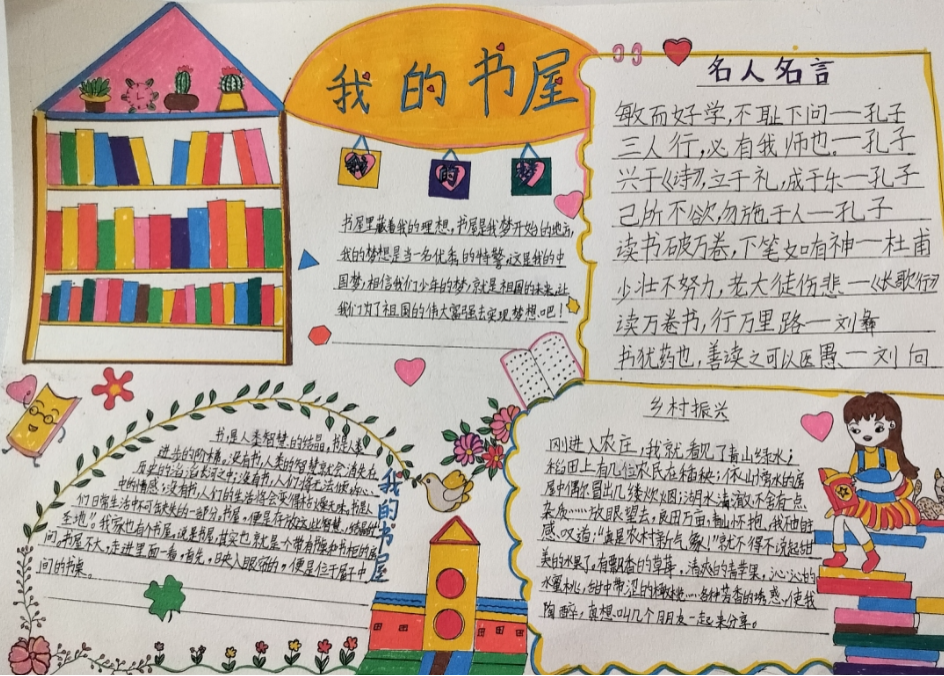 我的书屋
我的梦
书屋里藏着我的理想,书屋是我梦开始的地方,
我的梦想是当一名优秀的特警,这是我的中
国梦,相信我们少年的梦,就是祖国的未来,让
我们为了祖国的伟大富强去实现梦想吧!
名人名言
敏而好学,不耻下问——孔子
三人行,必有我师也.——孔子
兴于《诗》,立于礼,成于乐——孔子
己所不欲,勿施于人——孔子
读书破万卷,下笔如有神——杜甫
少壮不努力,老大徒伤悲.——《长歌行》
读万卷书,行万里路——刘彝
书犹药也,善读之可以医愚.——刘向
书,是人类智慧的结晶,书是人类
进步的阶梯,没有书,人类的智慧就会消失在
历史的滔滔长河之中;没有书,人们将无法倾
中的情感;没有书,人们的生活将会变得枯燥无味,书是人
们日常生活中不可缺失的一部分,书屋,便是存放这些智慧、结晶的
圣地"。我家也有个书屋,说是书屋,其实也就是一个带有书桌和书柜的房
间,书屋不大,走进里面一看,首先,映入眼帘的,便是位于屋子中
间的书桌。
我的书屋
乡村振兴
刚进入农庄,我就看见了青山绿水;
稻田上有几位农民在插秧;依山傍水的房
屋中偶尔冒出几缕炊烟;湖水清澈,不含有一点
杂质……放眼望去,良田万亩,青山怀抱,我不由的
感叹道:"真是农村新气象!"就不得不说起甜
美的水果了,有飘香的草莓,清爽的青苹果,沁心的
水蜜桃,甜中带涩的橄榄……各种芳香的诱惑,使我
陶醉,真想叫几个朋友一起来分享。